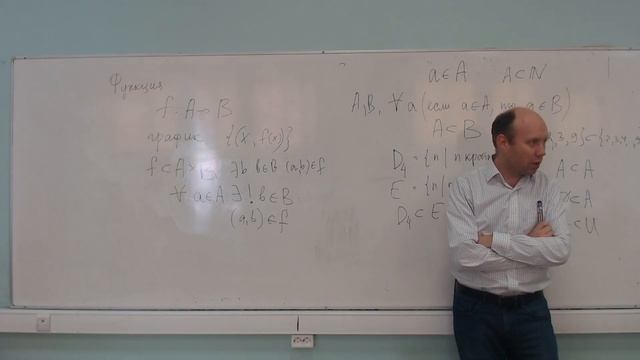 Функция
f: A → B
график {(x, f(x))}
f ⊂ A×B, ∃b b∈B (a,b)∈f
∀ a∈A ∃! b∈B
(a,b)∈f
a∈A A⊂N
A,B, ∀a (если a∈A, то a∈B)
A⊂B
D₄ = {n | n
E = {n |
D₄ ⊂ E
A⊂A
⊂A
⊂U